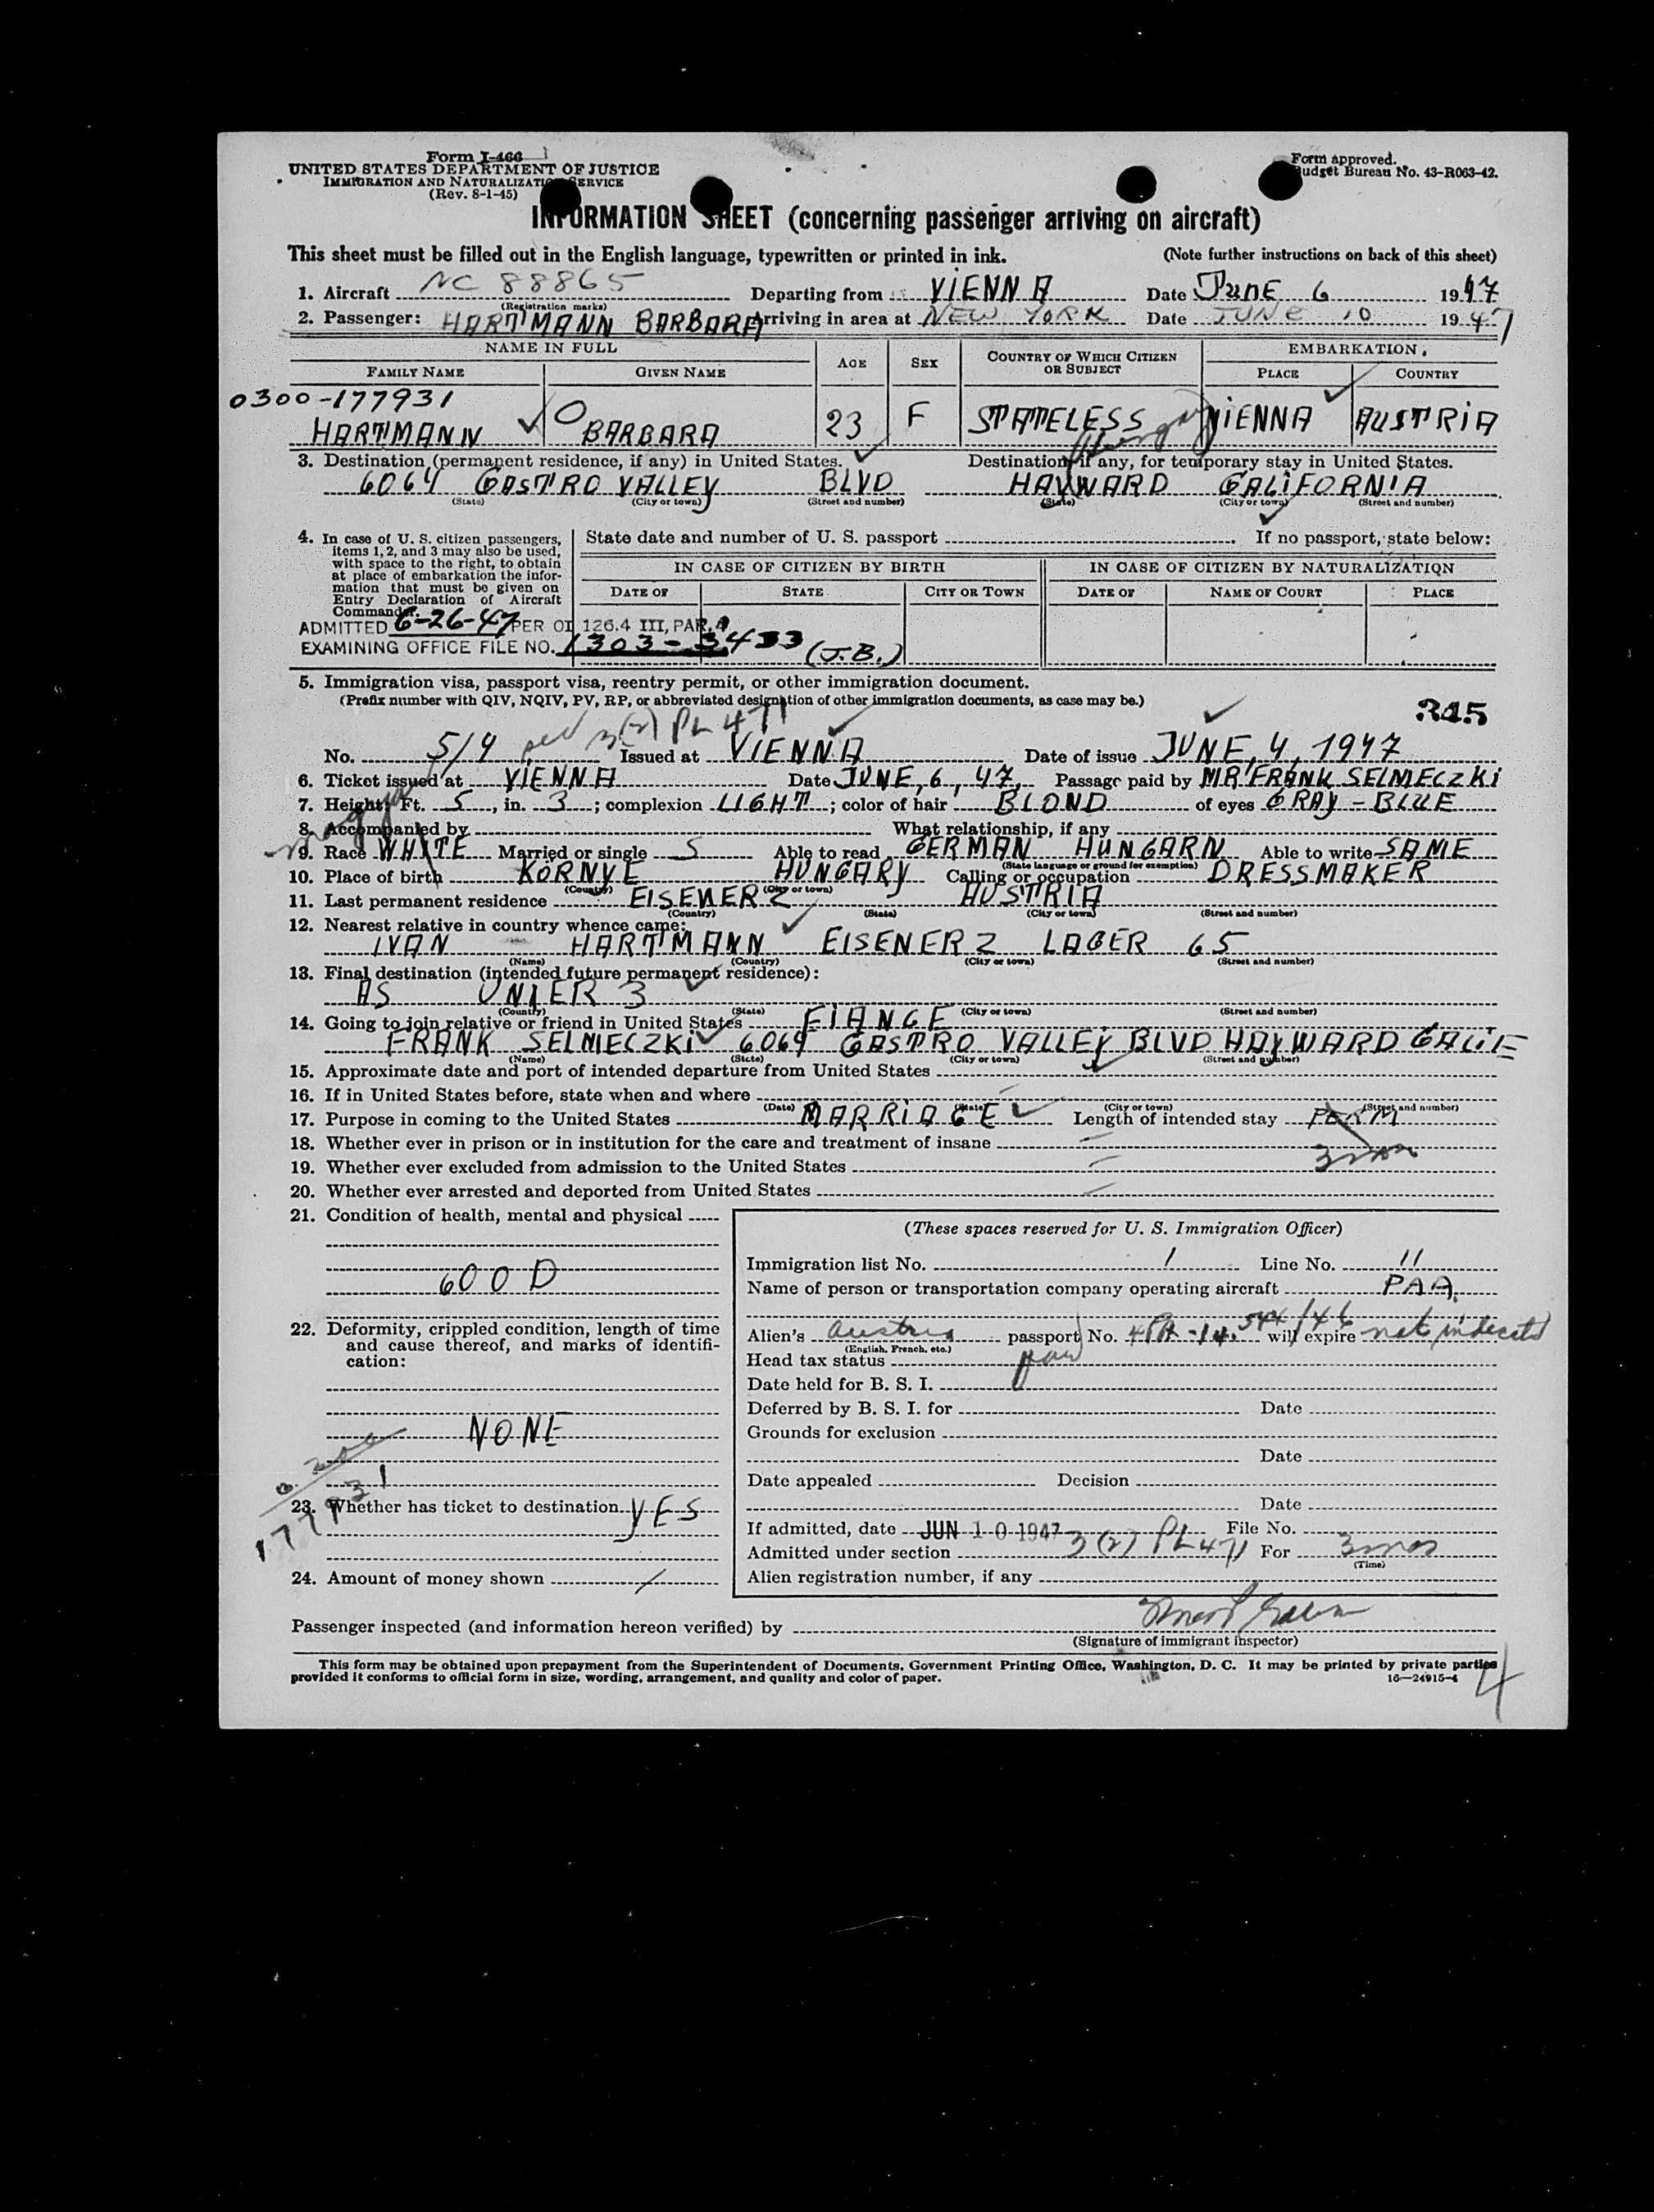 Form I-466
UNITED STATES DEPARTMENT OF JUSTICE
IMMIGRATION AND NATURALIZATION SERVICE
(Rev. 8-1-45)
Form approved.
Budget Bureau No. 43-R063-42.
INFORMATION SHEET (concerning passenger arriving on aircraft)
This sheet must be filled out in the English language, typewritten or printed in ink. (Note further instructions on back of this sheet)
1. Aircraft NC 88865 Departing from VIENNA Date JUNE 6 1947
(Registration marks)
2. Passenger: HARTMANN BARBARA Arriving in area at NEW YORK Date JUNE 10 1947
NAME IN FULL AGE SEX COUNTRY OF WHICH CITIZEN OR SUBJECT EMBARKATION
FAMILY NAME GIVEN NAME PLACE COUNTRY
0300-177931
HARTMANN BARBARA 23 F STATELESS VIENNA AUSTRIA
Hungary
3. Destination (permanent residence, if any) in United States. Destination, if any, for temporary stay in United States.
6064 CASTRO VALLEY BLVD HAYWARD CALIFORNIA
(State) (City or town) (Street and number) (State) (City or town) (Street and number)
4. In case of U. S. citizen passengers, items 1, 2, and 3 may also be used, with space to the right, to obtain at place of embarkation the information that must be given on Entry Declaration of Aircraft Commander.
State date and number of U. S. passport If no passport, state below:
IN CASE OF CITIZEN BY BIRTH IN CASE OF CITIZEN BY NATURALIZATION
DATE OF STATE CITY OR TOWN DATE OF NAME OF COURT PLACE
ADMITTED 6-26-47 PER OI 126.4 III, PAR. 4
EXAMINING OFFICE FILE NO. 1303-3433 (J.B.)
5. Immigration visa, passport visa, reentry permit, or other immigration document.
(Prefix number with QIV, NQIV, PV, RP, or abbreviated designation of other immigration documents, as case may be.)
345
3(2) PL 471
No. 514 Issued at VIENNA Date of issue JUNE, 4, 1947
6. Ticket issued at VIENNA Date JUNE, 6, 47, Passage paid by MR FRANK SELMECZKI
7. Height: Ft. 5, in. 3; complexion LIGHT; color of hair BLOND of eyes GRAY - BLUE
8. Accompanied by What relationship, if any
magyar
9. Race WHITE Married or single S Able to read GERMAN HUNGARN Able to write SAME
(State language or ground for exemption)
10. Place of birth KÖRNYE HUNGARY Calling or occupation DRESSMAKER
(Country) (City or town)
11. Last permanent residence EISENERZ AUSTRIA
(Country) (State) (City or town) (Street and number)
12. Nearest relative in country whence came:
IVAN HARTMANN EISENERZ LAGER 65
(Name) (Country) (City or town) (Street and number)
13. Final destination (intended future permanent residence):
AS UNTER 3
(Country) (State) (City or town) (Street and number)
14. Going to join relative or friend in United States FIANCE
FRANK SELMECZKI 6064 CASTRO VALLEY BLVD HAYWARD CALIF
(Name) (State) (City or town) (Street and number)
15. Approximate date and port of intended departure from United States
16. If in United States before, state when and where
(Date) (State) (City or town) (Street and number)
17. Purpose in coming to the United States MARRIAGE Length of intended stay PERM
3 mos
18. Whether ever in prison or in institution for the care and treatment of insane
19. Whether ever excluded from admission to the United States
20. Whether ever arrested and deported from United States
21. Condition of health, mental and physical
GOOD
22. Deformity, crippled condition, length of time and cause thereof, and marks of identification:
NONE
177931
23. Whether has ticket to destination YES
24. Amount of money shown /
(These spaces reserved for U. S. Immigration Officer)
Immigration list No. 1 Line No. 11
Name of person or transportation company operating aircraft PAA.
Alien's Austria passport No. will expire not indicated
(English, French, etc.)
Head tax status
Date held for B. S. I.
Deferred by B. S. I. for Date
Grounds for exclusion
Date
Date appealed Decision
Date
If admitted, date JUN 10 1947 File No.
Admitted under section 3(2) PL 471 For 3 mos
(Time)
Alien registration number, if any
Passenger inspected (and information hereon verified) by
(Signature of immigrant inspector)
This form may be obtained upon prepayment from the Superintendent of Documents, Government Printing Office, Washington, D. C. It may be printed by private parties
provided it conforms to official form in size, wording, arrangement, and quality and color of paper. 16—24915-4
4